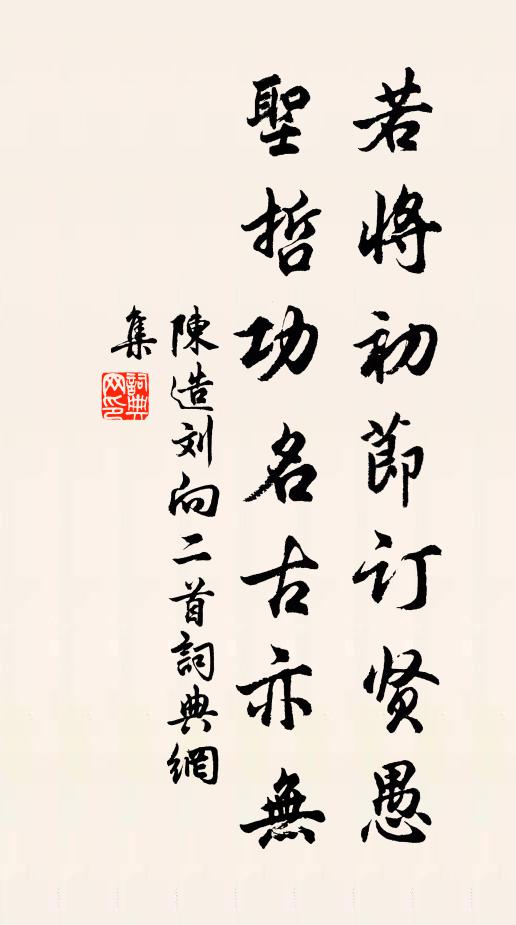 若将初節订贤愚
聖哲功名古亦無
陳造刘向二首詞典網
集
詞典網印